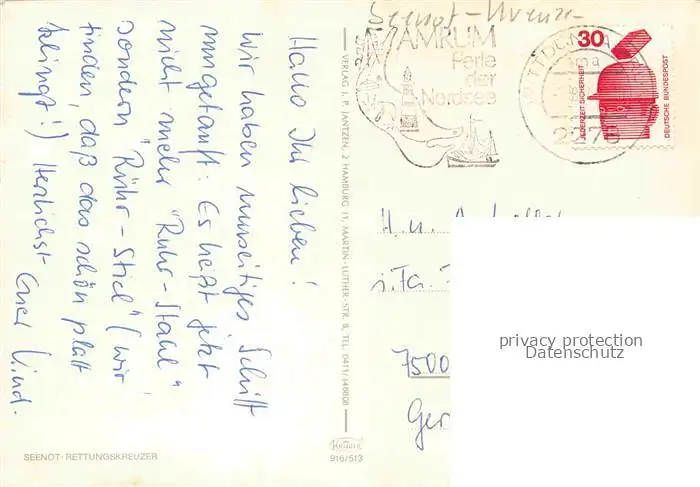 Seenot-Kreuzer
Hallo Ihr Lieben!
Wir haben unseitiges Schiff
umgetauft: Es heißt jetzt
nicht mehr "Ruhr-Stahl"
sondern "Rühr-Stiel" (wir
finden, daß das schön platt
klingt!) Herzlichst Euer
SEENOT-RETTUNGSKREUZER
VERLAG J. P. JANTZEN, 2 HAMBURG 11, MARTIN-LUTHER-STR. 8, TEL. 0411/348808
Krüger
916/513
AMRUM
Perle
der
Nordsee
WITTDÜN
2278
30
JEDERZEIT SICHERHEIT
DEUTSCHE BUNDESPOST
H. u.
7500
Ger
privacy protection
Datenschutz